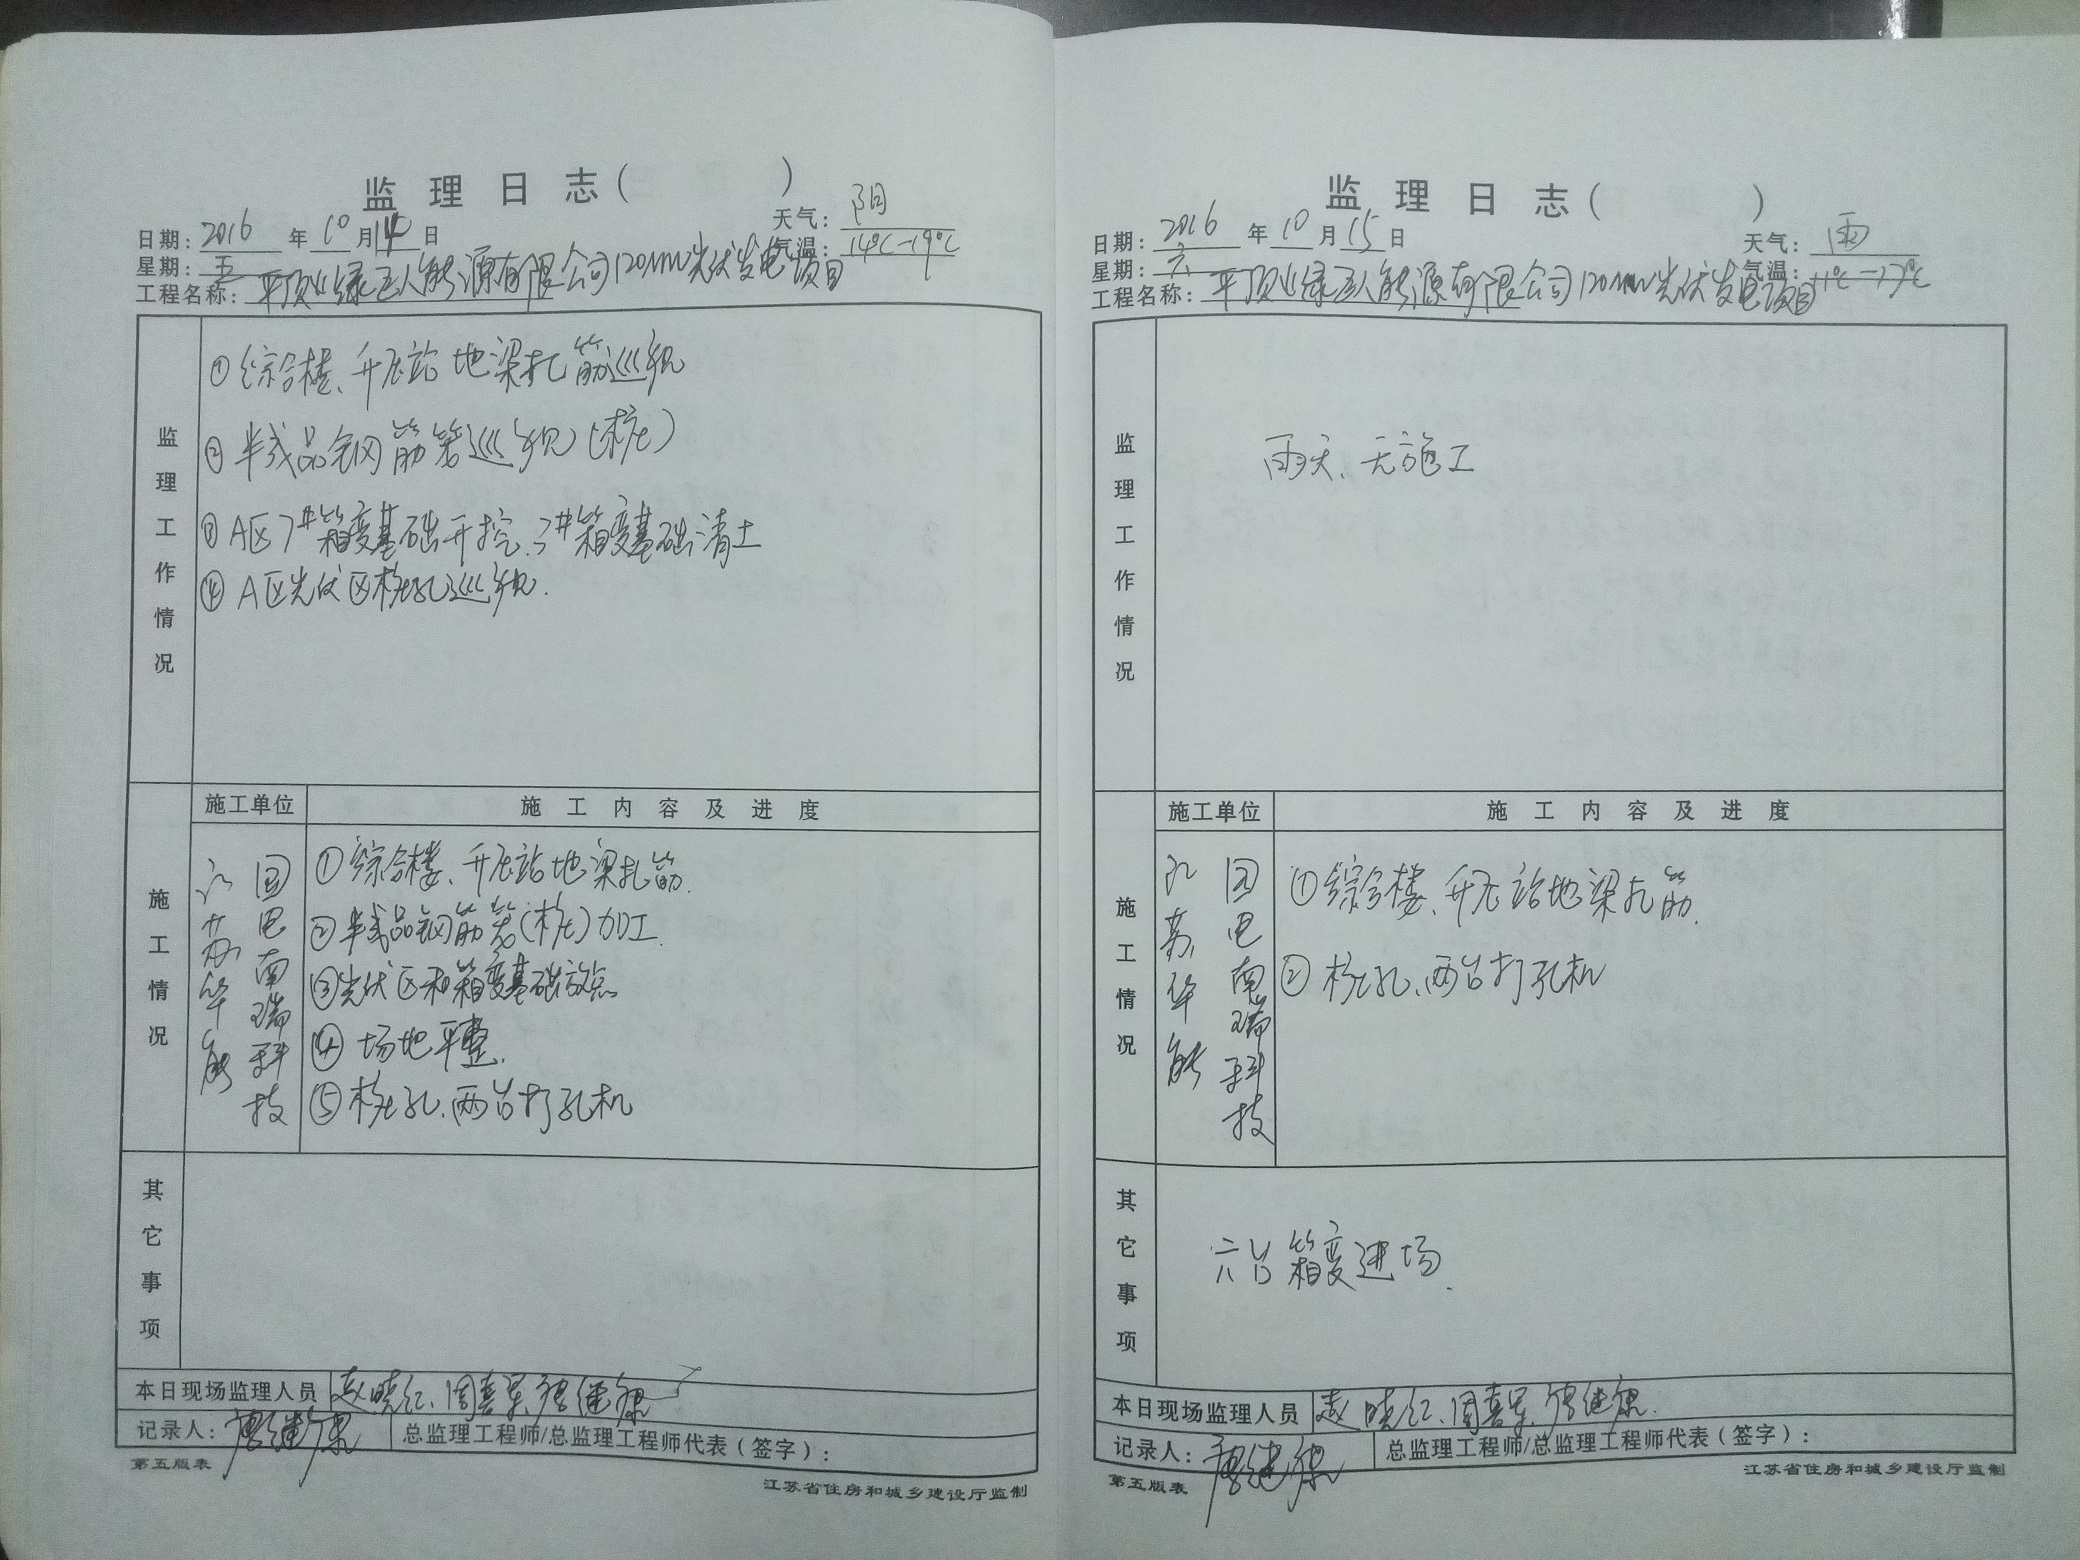 监理日志( )
日期: 2016 年 10 月 14 日 天气: 阴
星期: 五 气温: 14℃-19℃
工程名称: 平顶山绿巨人能源有限公司120MW光伏发电项目
监理工作情况
①综合楼、开压站地梁扎筋巡视
②半成品钢筋笼巡视(桩)
③A区7#箱变基础开挖、3#箱变基础清土
④A区光伏区桩孔巡视.
施工单位 施工内容及进度
施工情况
江苏华能
国电南瑞科技
①综合楼、开压站地梁扎筋.
②半成品钢筋笼(桩)加工.
③光伏区和箱变基础放点
④场地平整.
⑤桩孔、两台打孔机
其它事项
本日现场监理人员 赵晓红、周喜军、
记录人: 总监理工程师/总监理工程师代表(签字):
第五版表 江苏省住房和城乡建设厅监制
监理日志( )
日期: 2016 年 10 月 15 日 天气: 雨
星期: 六 气温: 11℃-17℃
工程名称: 平顶山绿巨人能源有限公司120MW光伏发电项目
监理工作情况
雨天、无施工
施工单位 施工内容及进度
施工情况
江苏华能
国电南瑞科技
①综合楼、开压站地梁扎筋.
②桩孔、两台打孔机
其它事项
六台箱变进场.
本日现场监理人员 赵晓红、周喜军、
记录人: 总监理工程师/总监理工程师代表(签字):
第五版表 江苏省住房和城乡建设厅监制